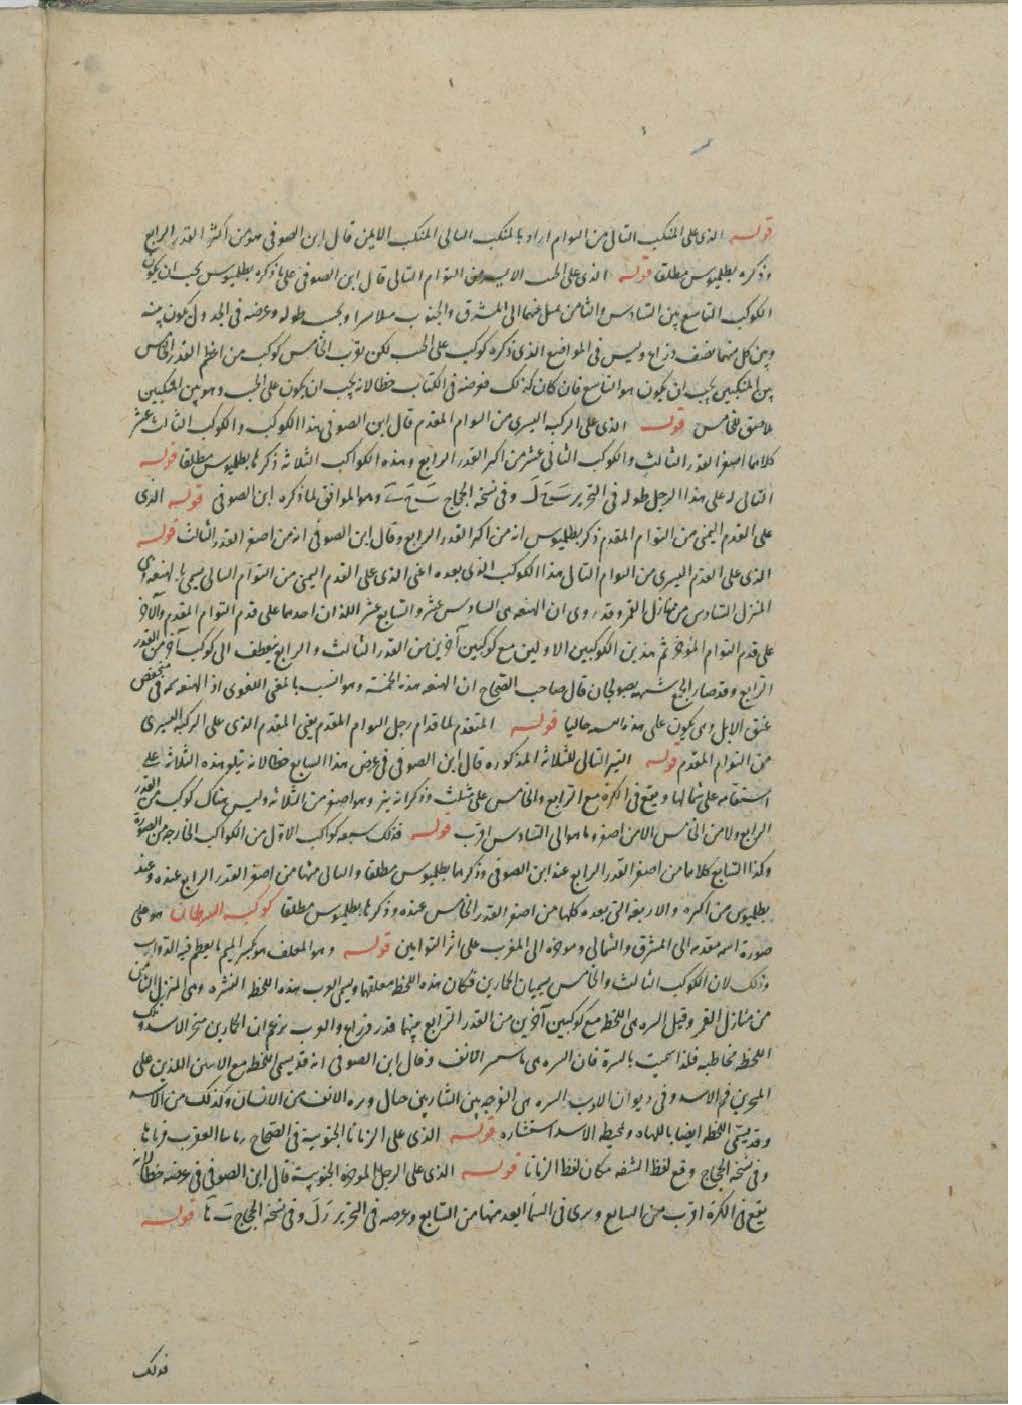 قوله الذى على المنكب التالى من التوام اراد بالمنكب التالى المنكب الايمن قال ابن الصوفى هو من اكثر القدر الرابع
وذكره بطلميوس مطلقا قوله الذى على الجنب الايسر من التوام التالى قال ابن الصوفى على ما ذكره بطلميوس يجب ان يكون
الكوكب التاسع بين السادس والثامن عنهما الى المشرق والجنوب وبحسب طوله وعرضه فى الجدول يكون بينه
وبين كل منهما نصف ذراع وليس فى المواضع الذى ذكره كوكب على الجنب لكن بقرب الخامس كوكب من اعظم القدر الخامس
بين المنكبين يجب ان يكون هو التاسع فان كان كذلك فعرضه فى الكتاب خطا لانه يجب ان يكون على الجنب وهو بين المنكبين
ملاصق للخامس قوله الذى على الركبة اليسرى من التوام المقدم قال ابن الصوفى هذا الكوكب والكوكب الثالث عشر
كلاهما اصغر القدر الثالث والكوكب الثانى عشر من اكبر القدر الرابع وهذه الكواكب الثلاثة ذكرها بطلميوس مطلقا قوله
التالى له على هذا الرجل طوله فى التحرير وفى نسخة الحجاج وهو الموافق لما ذكره ابن الصوفى قوله الذى
على القدم اليمنى من التوام المقدم ذكر بطلميوس انه من اكبر القدر الرابع وقال ابن الصوفى انه من اصغر القدر الثالث قوله
الذى على القدم اليسرى من التوام التالى هذا الكوكب الذى بعده اعنى الذى على القدم اليمنى من التوام التالى يسمى بالهنعة وهى
المنزل السادس من منازل القمر وقد روى ان الهنعة هى السادس عشر والسابع عشر اللذان احدهما على قدم التوام المقدم والاخر
على قدم التوام المؤخر ثم هذين الكوكبين الاولين مع كوكبين آخرين من القدر الثالث والرابع ينعطف الى كوكب آخر من القدر
الرابع وقد صار الجميع شبيه بصولجان قال صاحب الصحاح ان الهنعة هذه الخمسة وهو انسب بالمعنى اللغوى اذ الهنعة سمة فى منخفض
عنق الابل وهى يكون على هذه حاليا قوله المتقدم لما قدام رجل التوام المقدم يعنى المقدم الذى على الركبة اليسرى
من التوام المقدم قوله النير التالى للثلاثة المذكورة قال ابن الصوفى فى عرض هذا السابع خطا لانه يتلو هذه الثلاثة على
استقامة على شمالها ويقع فى الكرة مع الرابع والخامس على مثلث وذكر انه نير وهو اصغر من الثلاثة وليس هناك كوكب من القدر
الرابع ولا من الخامس الا من اصغره وما هو الى السادس اقرب قوله فذلك سبعة كواكب الاول من الكواكب الخارجة من الصورة
وكذا السابع كلاهما من اصغر القدر الرابع عند ابن الصوفى وذكرهما بطلميوس مطلقا والتالى منها من اصغر القدر الرابع عنده وعند
بطلميوس من اكبره والاربعة التى بعده كلها من اصغر القدر الخامس عنده وذكرها بطلميوس مطلقا كوكبة السرطان هو على
صورة اسمه مقدمه الى المشرق والشمالى ومؤخره الى المغرب على اثر التوامين قوله وهو المعلف هو بكسر الميم ما يعلف فيه الدواب
وذلك لان الكوكب الثالث والخامس يسميان الحمارين فكان هذه اللطخة معلفهما ويسمى العرب هذه اللطخة النثرة وهى المنزل الثامن
من منازل القمر وقيل النثرة هى اللطخ مع كوكبين آخرين من القدر الرابع بينهما قدر ذراع والعرب يزعم ان الحمارين منخر الاسد وتلك
اللطخة مخاطبه فلذا سميت بالنثرة فان النثرة هى الانف وقال ابن الصوفى انه قد يسمى اللطخ مع الاثنين اللذين على
المنخرين فم الاسد وفى ديوان الادب النثرة هى الفرجة بين الشاربين حيال وترة الانف من الانسان وكذلك من الاسد
وقد يسمى اللطخة ايضا باللهاة ولمحطة الاسد استثاره قوله الذى على الزبانا الجنوبية فى الصحاح زبانيا العقرب قرناها
وفى نسخة الحجاج وقع لفظ الشفة مكان لفظ الزبانا قوله الذى على الرجل المؤخرة الجنوبية قال ابن الصوفى فى عرضه خطا لانه
يقع فى الكرة اقرب من السابع ويرى فى السماء ابعد منها من السابع وعرضه فى التحرير وفى نسخة الحجاج قوله
فذلك